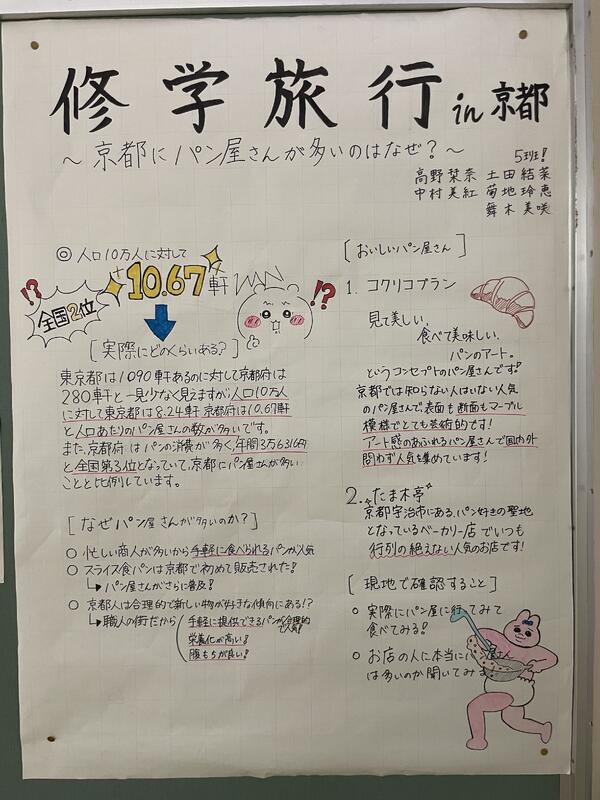 修学旅行 in 京都
～京都にパン屋さんが多いのはなぜ？～
5班！
高野栞奈 土田結菜
中村美紅 菊地玲恵
舞木美咲
◎ 人口10万人に対して
10.67軒
!?
全国2位
!?
[実際にどのくらいある？]
東京都は1090軒あるのに対して京都府は
280軒と一見少なく見えますが、人口10万人
に対して東京都は8.24軒 京都府は10.67軒
と人口あたりのパン屋さんの数が多いです。
また、京都府はパンの消費が多く、年間3万6316円
と全国第3位となっていて、京都にパン屋さんが多い
ことと比例しています。
[なぜパン屋さんが多いのか？]
○ 忙しい商人が多いから手軽に食べられるパンが人気
○ スライス食パンは京都で初めて販売された！
↳ パン屋さんがさらに普及！
○ 京都人は合理的で新しい物が好きな傾向にある!?
↳ 職人の街だから
手軽に提供できるパンが合理的で人気！
栄養化が高い！
腹もちが良い！
[おいしいパン屋さん]
1. コクリコブラン
見て美しい、
食べて美味しい、
パンのアート。
というコンセプトのパン屋さんです！
京都では知らない人はいない人気
のパン屋さんで表面も断面もマーブル
模様でとても芸術的です！
アート感のあふれるパン屋さんで国内外
問わず人気を集めています！
2. たま木亭
京都宇治市にある、パン好きの聖地
となっているベーカリー店でいつも
行列の絶えない人気のお店です！
[現地で確認すること]
○ 実際にパン屋に行ってみて
食べてみる！
○ お店の人に本当にパン屋さん
は多いのか聞いてみ